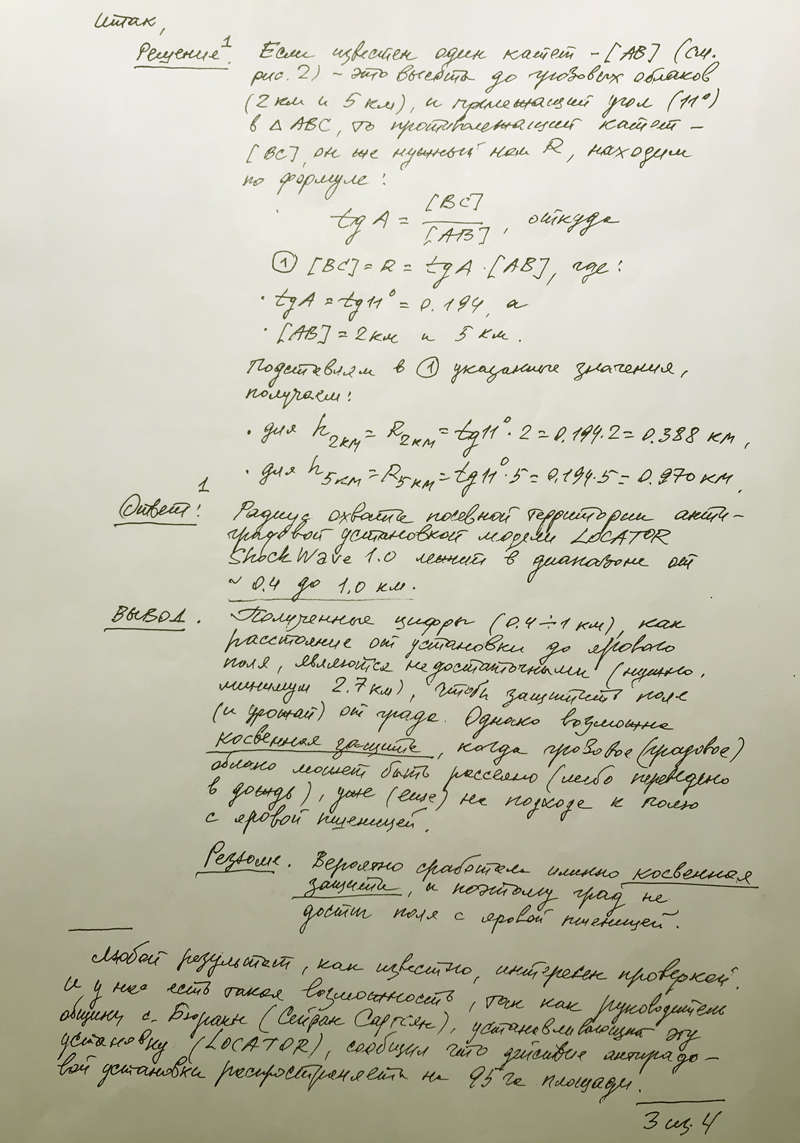 Итак,
Решение¹. Если известен один катет – [AB] (см.
рис. 2) – это высота до грозовых облаков
(2 км и 5 км), и прилежащий угол (11°)
в △ ABC, то противолежащий катет –
[BC], он же нужный нам R, находим
по формуле:
tg A = [BC] / [AB], откуда
① [BC] = R = tg A · [AB], где:
· tg A = tg 11° = 0.194, а
· [AB] = 2 км и 5 км.
Подставляем в ① указанные значения,
получаем:
· для h2км = R2км = tg 11° · 2 = 0.194 · 2 = 0.388 км,
· для h5км = R5км = tg 11° · 5 = 0.194 · 5 = 0.970 км.
Ответ¹: Радиус охвата посевной территории анти-
градовой установкой модели LOCATOR
ShockWave 1.0 лежит в диапазоне от
~ 0.4 до 1.0 км.
ВЫВОД. Полученные цифры (0.4 ÷ 1 км), как
расстояние от установки до ярового
поля, являются недостаточными (нужно,
минимум 2.7 км), чтобы защитить поле
(и урожай) от града. Однако возможна
косвенная защита, когда грозовое (градовое)
облако может быть рассеяно (либо переведено
в дождь), уже (еще) на подходе к полю
с яровой пшеницей.
Резюме. Вероятно сработала именно косвенная
защита, и поэтому град не
достиг поля с яровой пшеницей.
Любой результат, как известно, интересен проверкой.
И у нас есть такая возможность, так как руководитель
общины с. Бюракн (Сейран Саргсян), устанавливающий эту
установку (LOCATOR), сообщил что действие антиградо-
вой установки распространяется на 95 га площади.
3 из 4